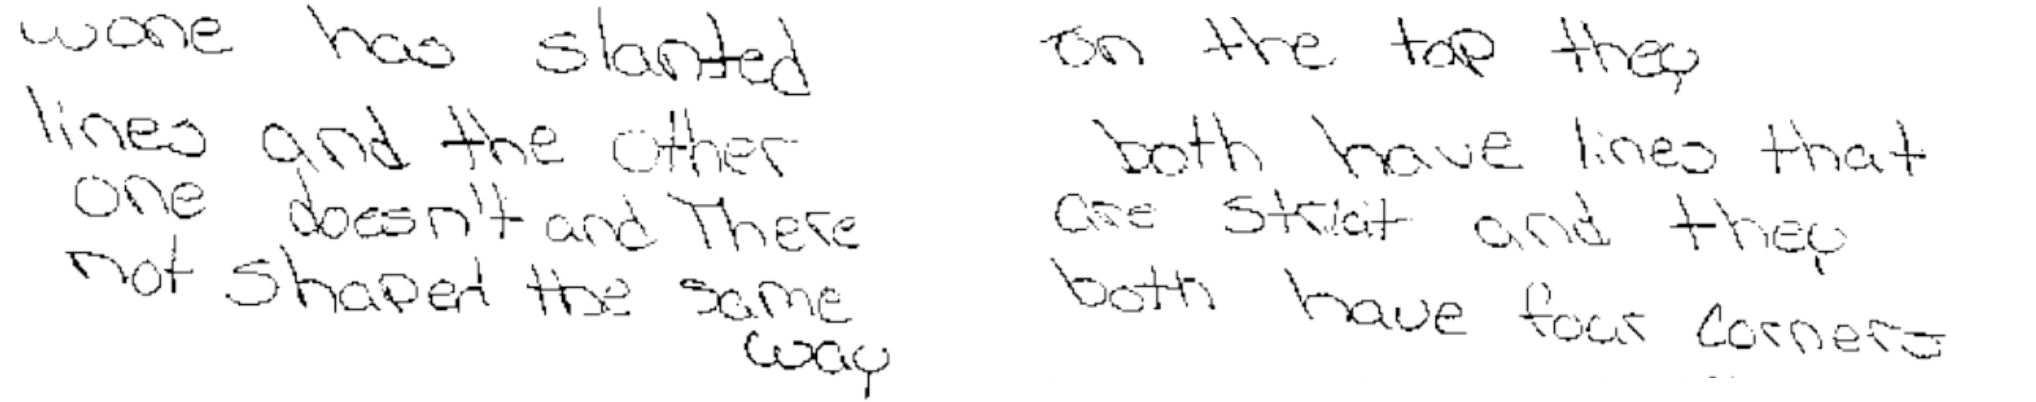 wone has slanted
lines and the other
one doesn't and There
not shaped the same
way
on the top they
both have lines that
are striat and they
both have four corners